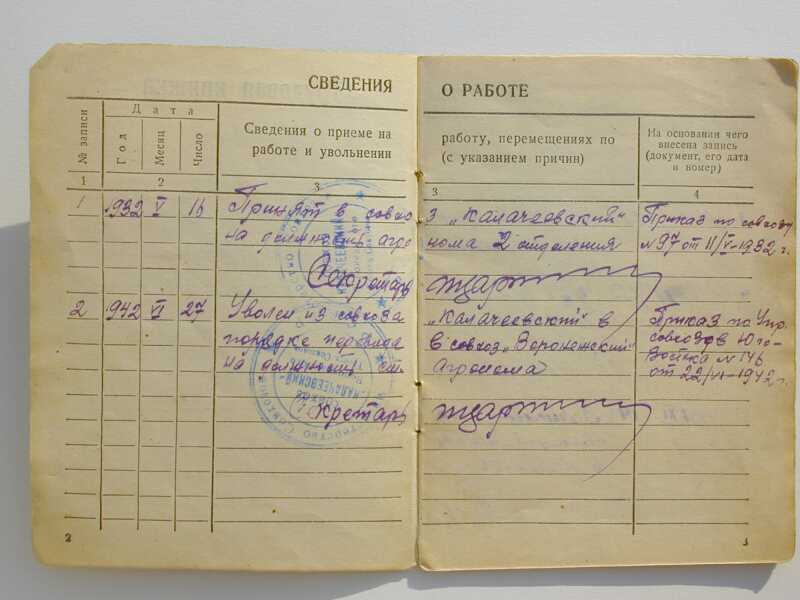 СВЕДЕНИЯ О РАБОТЕ
№ записи
Дата
Год
Месяц
Число
Сведения о приеме на работу, перемещениях по
работе и увольнении (с указанием причин)
На основании чего
внесена запись
(документ, его дата
и номер)
1 2 3 3 4
1 1932 V 11 Принят в совхоз „Калачеевский"
на должность агронома 2 отделения
Приказ по совхозу
№97 от 11/V-1932 г.
Секретарь
2 942 VI 27 Уволен из совхоза „Калачеевский" в
порядке перевода в совхоз „Воронежский"
на должность агронома
Приказ по Упр.
совхозов Юго-
№ 146
от 22/VI-1942 г.
Секретарь
КАЛАЧЕЕВСКИЙ
2